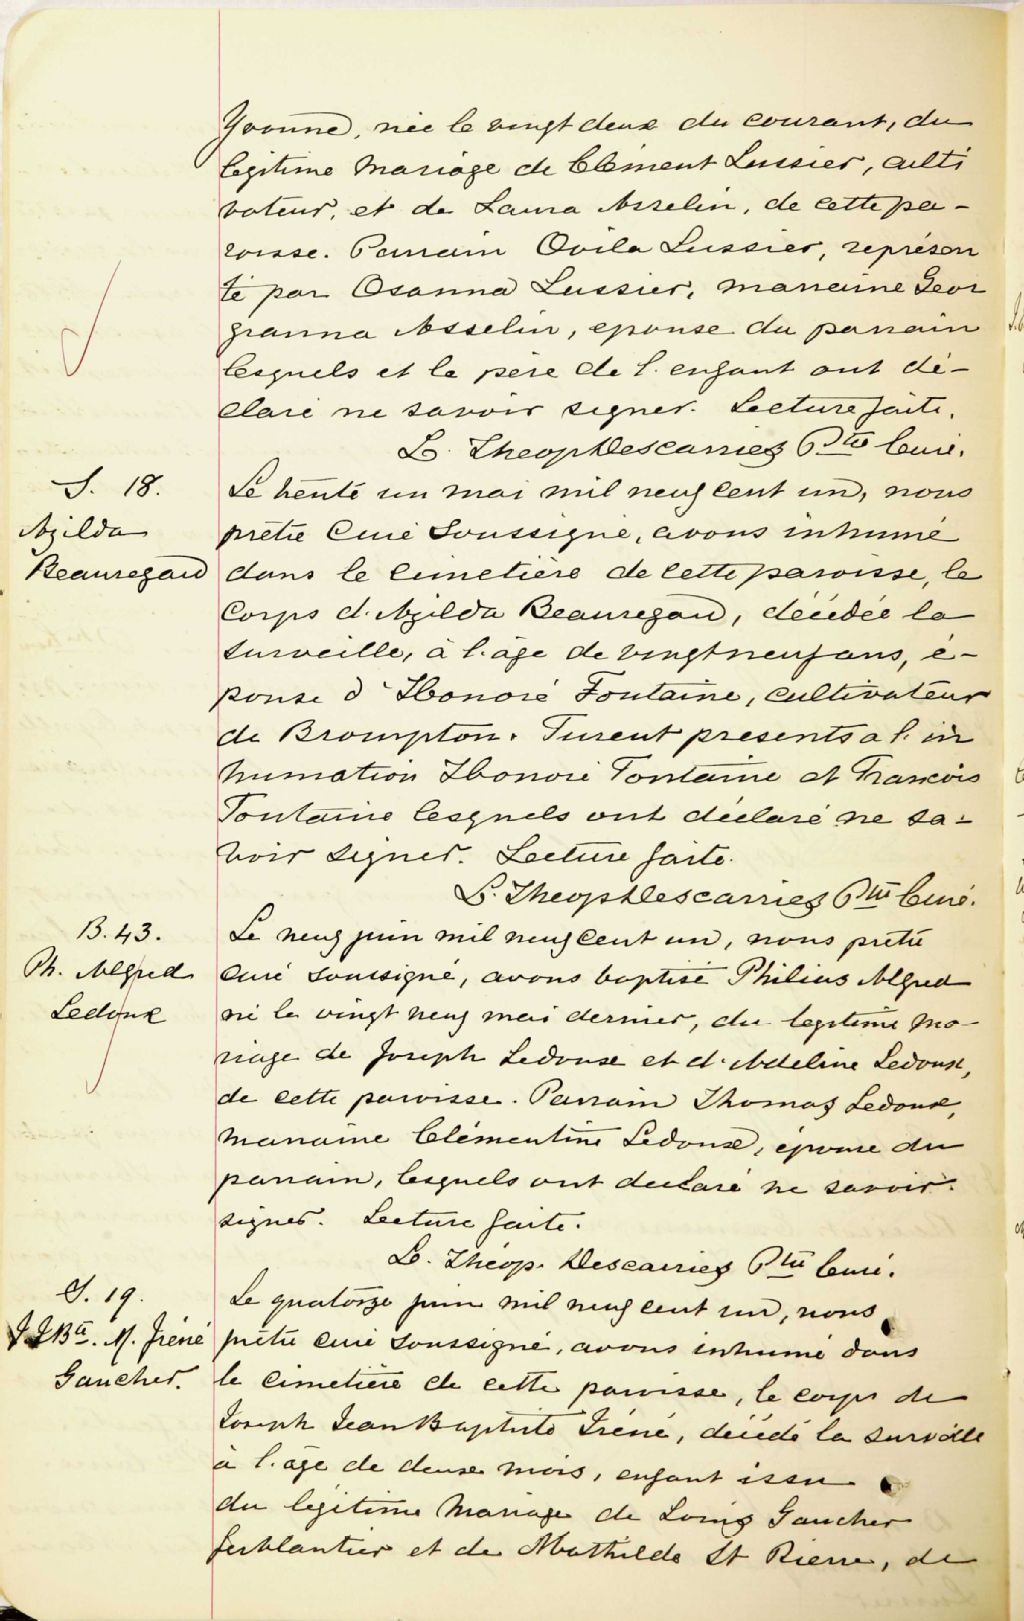 Yvonne, née le vingt deux du courant, du
légitime mariage de Clément Lussier, culti
vateur, et de Laura Asselin, de cette pa-
roisse. Parrain Ovila Lussier, représen
té par Osanna Lussier, marraine Geor
gianna Asselin, épouse du parrain
lesquels et le père de l'enfant ont dé-
claré ne savoir signer. Lecture faite.
L. Theop Descarries Ptre Curé.
S. 18.
Azilda
Beauregard
Le trente un mai mil neuf cent un, nous
prêtre curé soussigné, avons inhumé
dans le cimetière de cette paroisse, le
corps d'Azilda Beauregard, décédée la
surveille, à l'âge de vingt neuf ans, é-
pouse d'Honoré Fontaine, cultivateur
de Brompton. Furent presents a l'in
humation Honoré Fontaine et François
Fontaine lesquels ont déclaré ne sa-
voir signer. Lecture faite.
L. Theop Descarries Ptre Curé.
B. 43.
Ph. Alfred
Ledoux
Le neuf juin mil neuf cent un, nous prêtre
curé soussigné, avons baptisé Philias Alfred
né le vingt neuf mai dernier, du legitime ma-
riage de Joseph Ledoux et d'Adeline Ledoux,
de cette paroisse. Parrain Thomas Ledoux,
marraine Clémentine Ledoux, épouse du
parrain, lesquels ont declaré ne savoir
signer. Lecture faite.
L. Théop. Descarries Ptre Curé.
S. 19.
J J Bte. M. Iréné
Gaucher.
Le quatorze juin mil neuf cent un, nous
prêtre curé soussigné, avons inhumé dans
le cimetière de cette paroisse, le corps de
Joseph Jean Baptiste Iréné, décédé la surveille
à l'âge de deux mois, enfant issu
du légitime mariage de Louis Gaucher
ferblantier et de Mathilde St Pierre, de